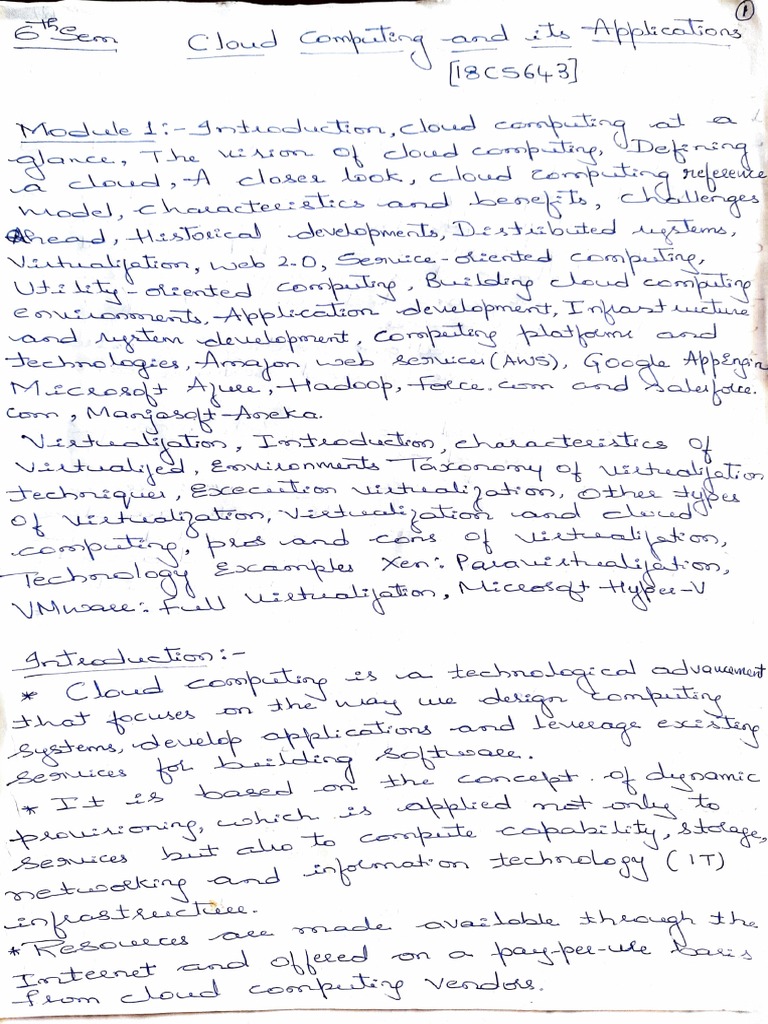 1
6th Sem Cloud Computing and its Applications
[18CS643]
Module 1:- Introduction, cloud computing at a
glance, The vision of cloud computing, Defining
a cloud, A closer look, cloud computing reference
model, characteristics and benefits, challenges
Ahead, Historical developments, Distributed systems,
Virtualization, web 2.0, Service-oriented computing,
Utility-oriented computing, Building cloud computing
environments, Application development, Infrastructure
and system development, computing platforms and
technologies, Amazon web services (AWS), Google AppEngin
Microsoft Azure, Hadoop, Force.com and Salesforce.
com, Manjrasoft Aneka.
Virtualization, Introduction, characteristics of
Virtualized, Environments Taxonomy of virtualization
techniques, Execution virtualization, other types
of virtualization, virtualization and cloud
computing, pros and cons of virtualization,
Technology Examples Xen: Paravirtualization,
VMware: Full Virtualization, Microsoft Hyper-V
Introduction:-
* Cloud computing is a technological advancement
that focuses on the way we design computing
systems, develop applications and leverage existing
services for building software.
* It is based on the concept of dynamic
provisioning, which is applied not only to
services but also to compute capability, storage,
networking and information technology (IT)
infrastructure.
* Resources are made available through the
Internet and offered on a pay-per-use basis
from cloud computing vendors.